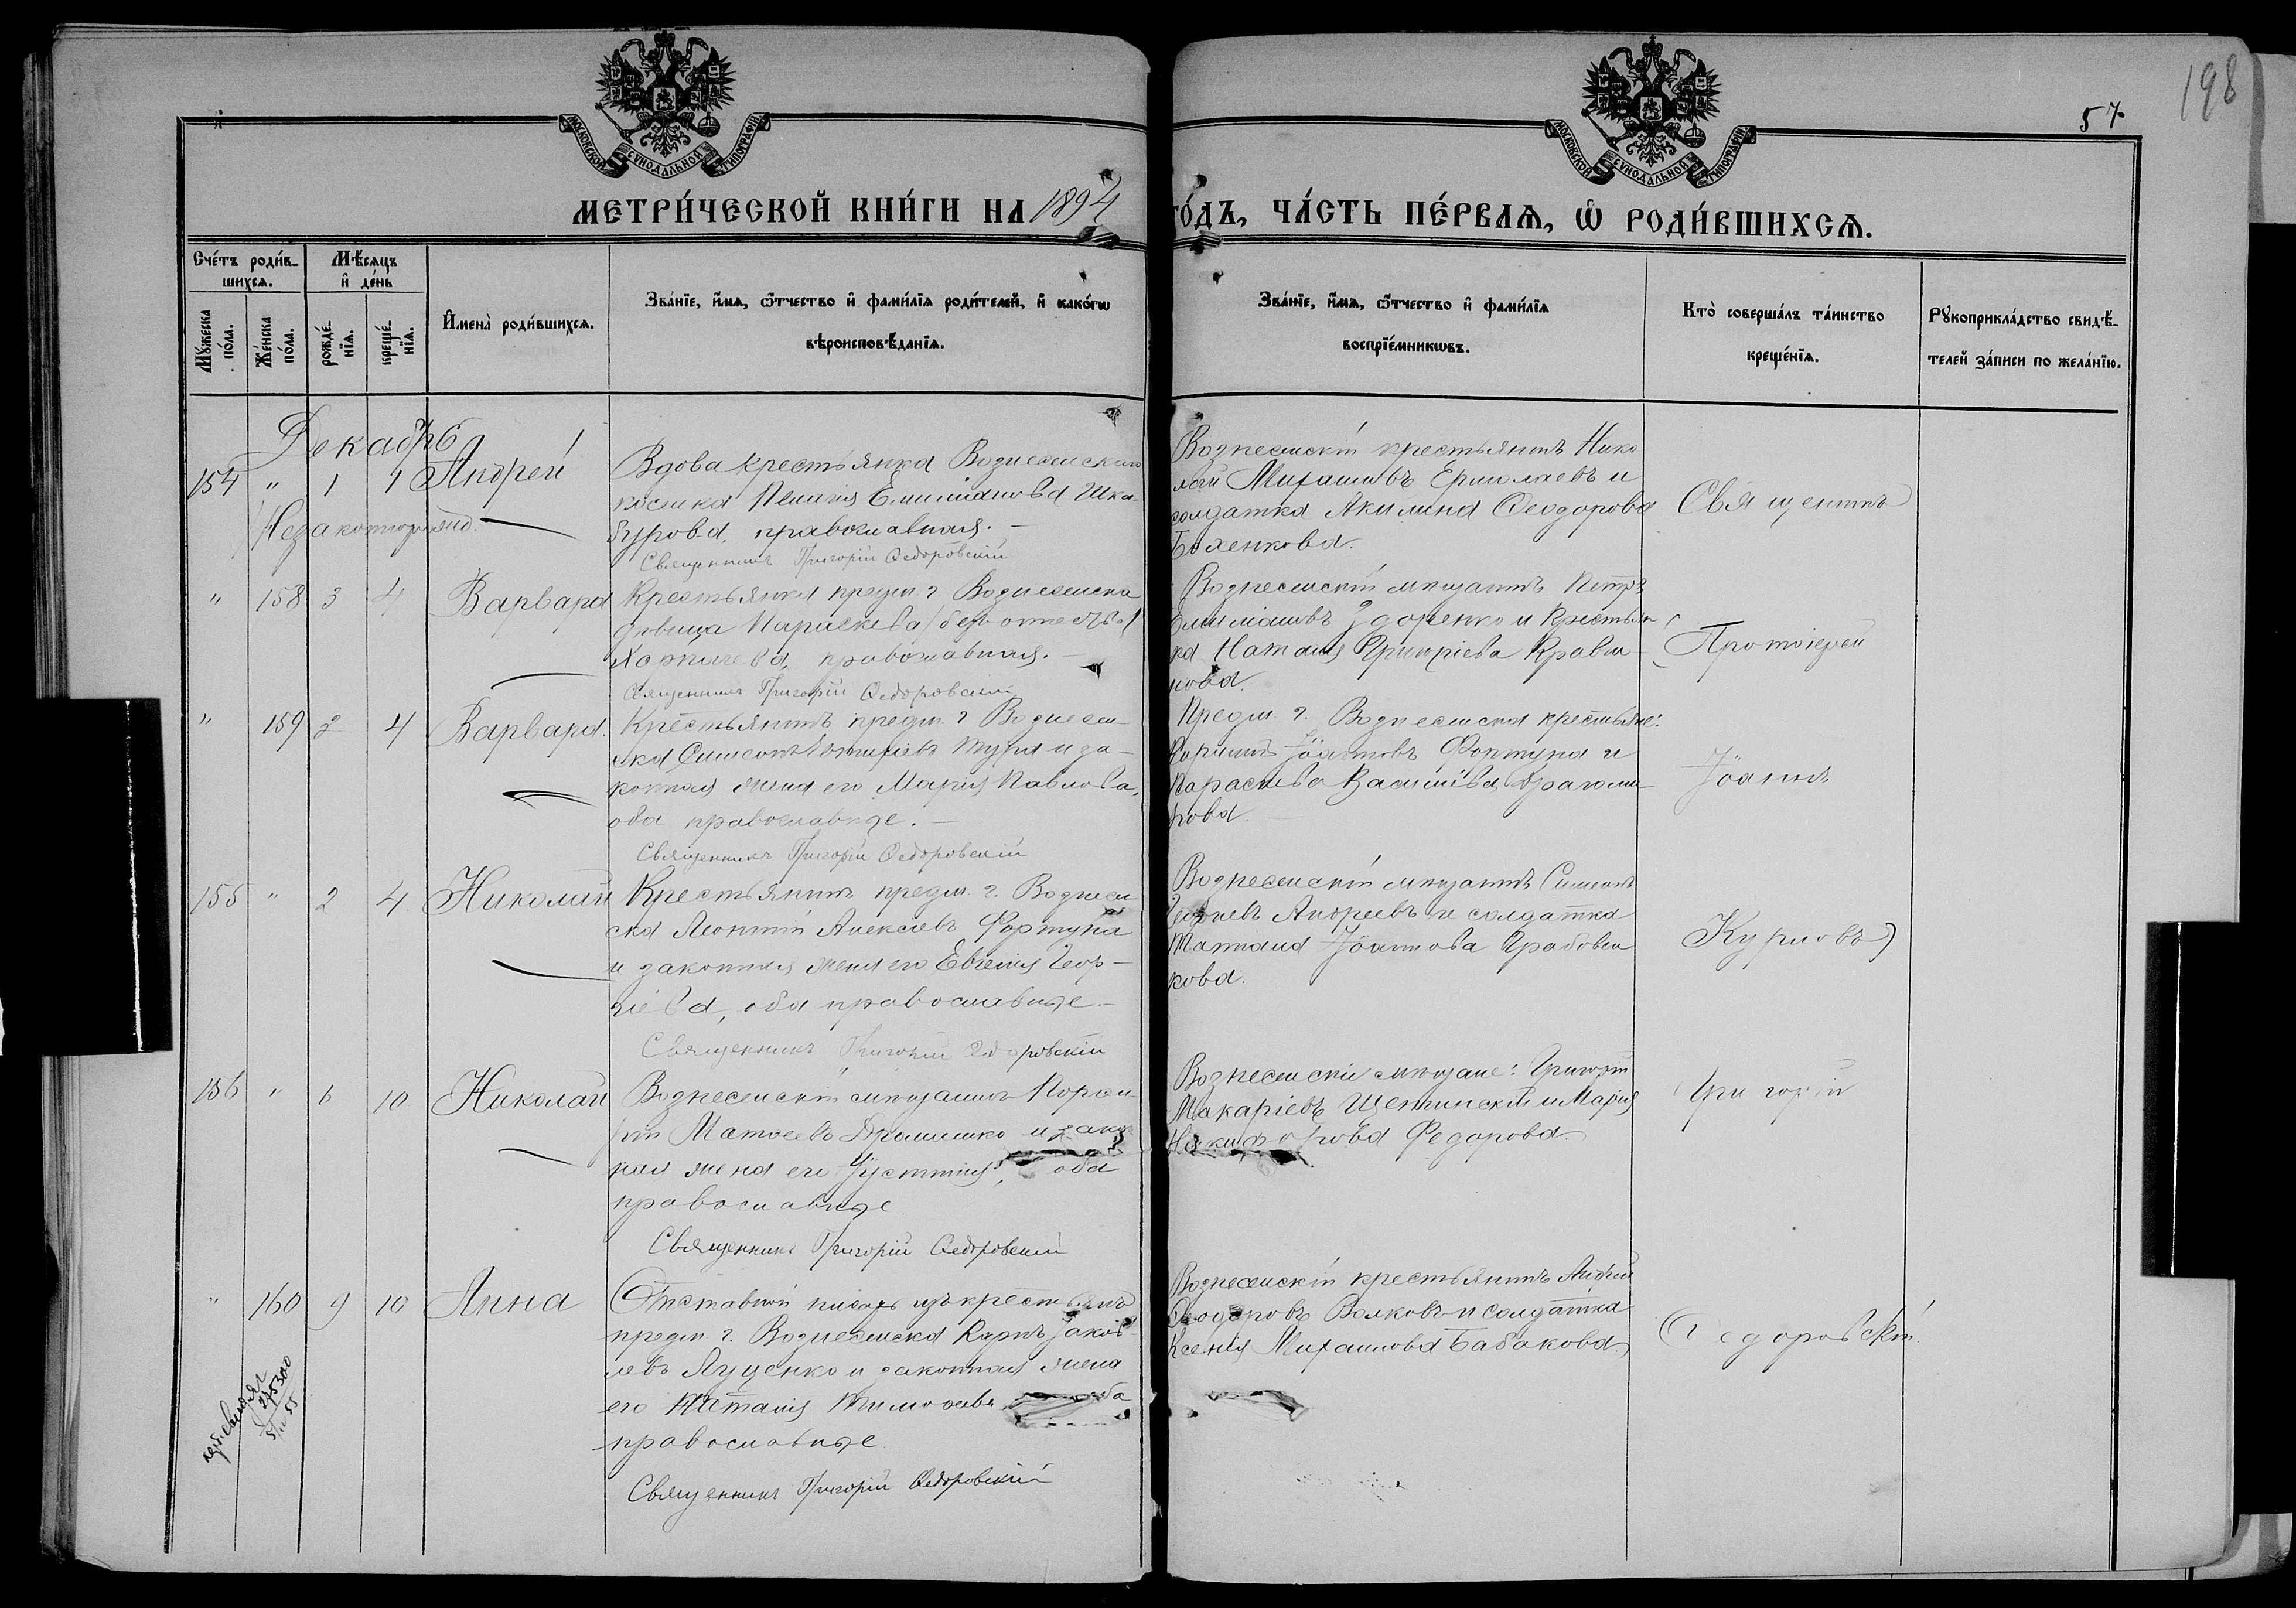 198
57
МОСКОВСКОЙ СУНОДАЛЬНОЙ ТИПОГРАФІИ
МОСКОВСКОЙ СУНОДАЛЬНОЙ ТИПОГРАФІИ
МЕТРИ́ЧЕСКОЙ КНИ́ГИ НА 1894 ГО́ДЪ, ЧА́СТЬ ПЕ́РВАѦ, Ѡ҆ РОДИ́ВШИХСѦ.
Сче́тъ роди́в-
шихсѧ.
Мѣ́сѧцъ
и҆ де́нь
Мꙋ́жеска
по́ла.
Же́нска
по́ла.
рожде́-
нїѧ.
креще́-
нїѧ.
И҆мена̀ роди́вшихсѧ.
Зва́нїе, и҆́мѧ, ѻ҆́тчество и҆ фами́лїѧ роди́телей, и҆ како́гѡ
вѣроисповѣ́данїѧ.
Зва́нїе, и҆́мѧ, ѻ҆́тчество и҆ фами́лїѧ
воспрїе́мникѡвъ.
Кто̀ соверша́лъ та́инство
креще́нїѧ.
Рꙋкоприкла́дство свидѣ́-
телей за́писи по жела́нїю.
Декабрь
154 " 1 1 Андрей
Незаконнорожд.
Вдова крестьянка Вознесенскаго
Пелагія Емиліанова Шка-
бурова, православная. –
Священникъ Григорій Ѳедоровскій
Вознесенскій крестьянинъ Нико
лай Михаиловъ Ермолаевъ и
солдатка Акилина Ѳеодорова
Баженкова.
" 158 3 4 Варвара
Крестьянка предм. г. Вознесенска
дѣвица Параскева (безъ отчества)
православная. –
Священникъ Григорій Ѳедоровскій
Вознесенскій мѣщанинъ Петръ
Емиліановъ Здоренко и крестьян
ка Наталія Григоріева Кравчи
нова.
" 159 2 4 Варвара.
Крестьянинъ предм. г. Вознесен-
ска Симеонъ и за-
конная жена его Марія Павлова,
оба православные. –
Священникъ Григорій Ѳедоровскій
Предм. г. Вознесенска крестьяне:
Іоанновъ Фортуна и
Параскева Василіева
нова.
155 " 2 4 Николай
Крестьянинъ предм. г. Вознесен
ска Леонтій Алексѣевъ Фортуна
и законная жена его Евгенія Геор-
гіева, оба православные –
Священникъ Григорій Ѳедоровскій
Вознесенскій мѣщанинъ Симеонъ
Андреевъ и солдатка
Татіана Іоаннова Грабовен
кова.
156 " 6 10 Николай
Вознесенскій мѣщанинъ Порфи-
рій Матѳеевъ и закон
ная жена его Іустинія, оба
православные
Священникъ Григорій Ѳедоровскій
Вознесенскіе мѣщане: Григорій
Макаріевъ Щетинскій и Марія
Никифорова Федорова.
" 160 9 10 Анна
Отставной писарь изъ крестьянъ
предм г. Вознесенска Карпъ Іаков-
левъ Луценко и законная жена
его Наталія Тимоѳеева оба
православные
Священникъ Григорій Ѳедоровскій
Вознесенскій крестьянинъ Андрей
Ѳеодоровъ Волковъ и солдатка
Ксенія Михаилова Бабакова
Священникъ
Протоіерей
Іоаннъ
Курловъ)
Григорій
Ѳедоровскій.